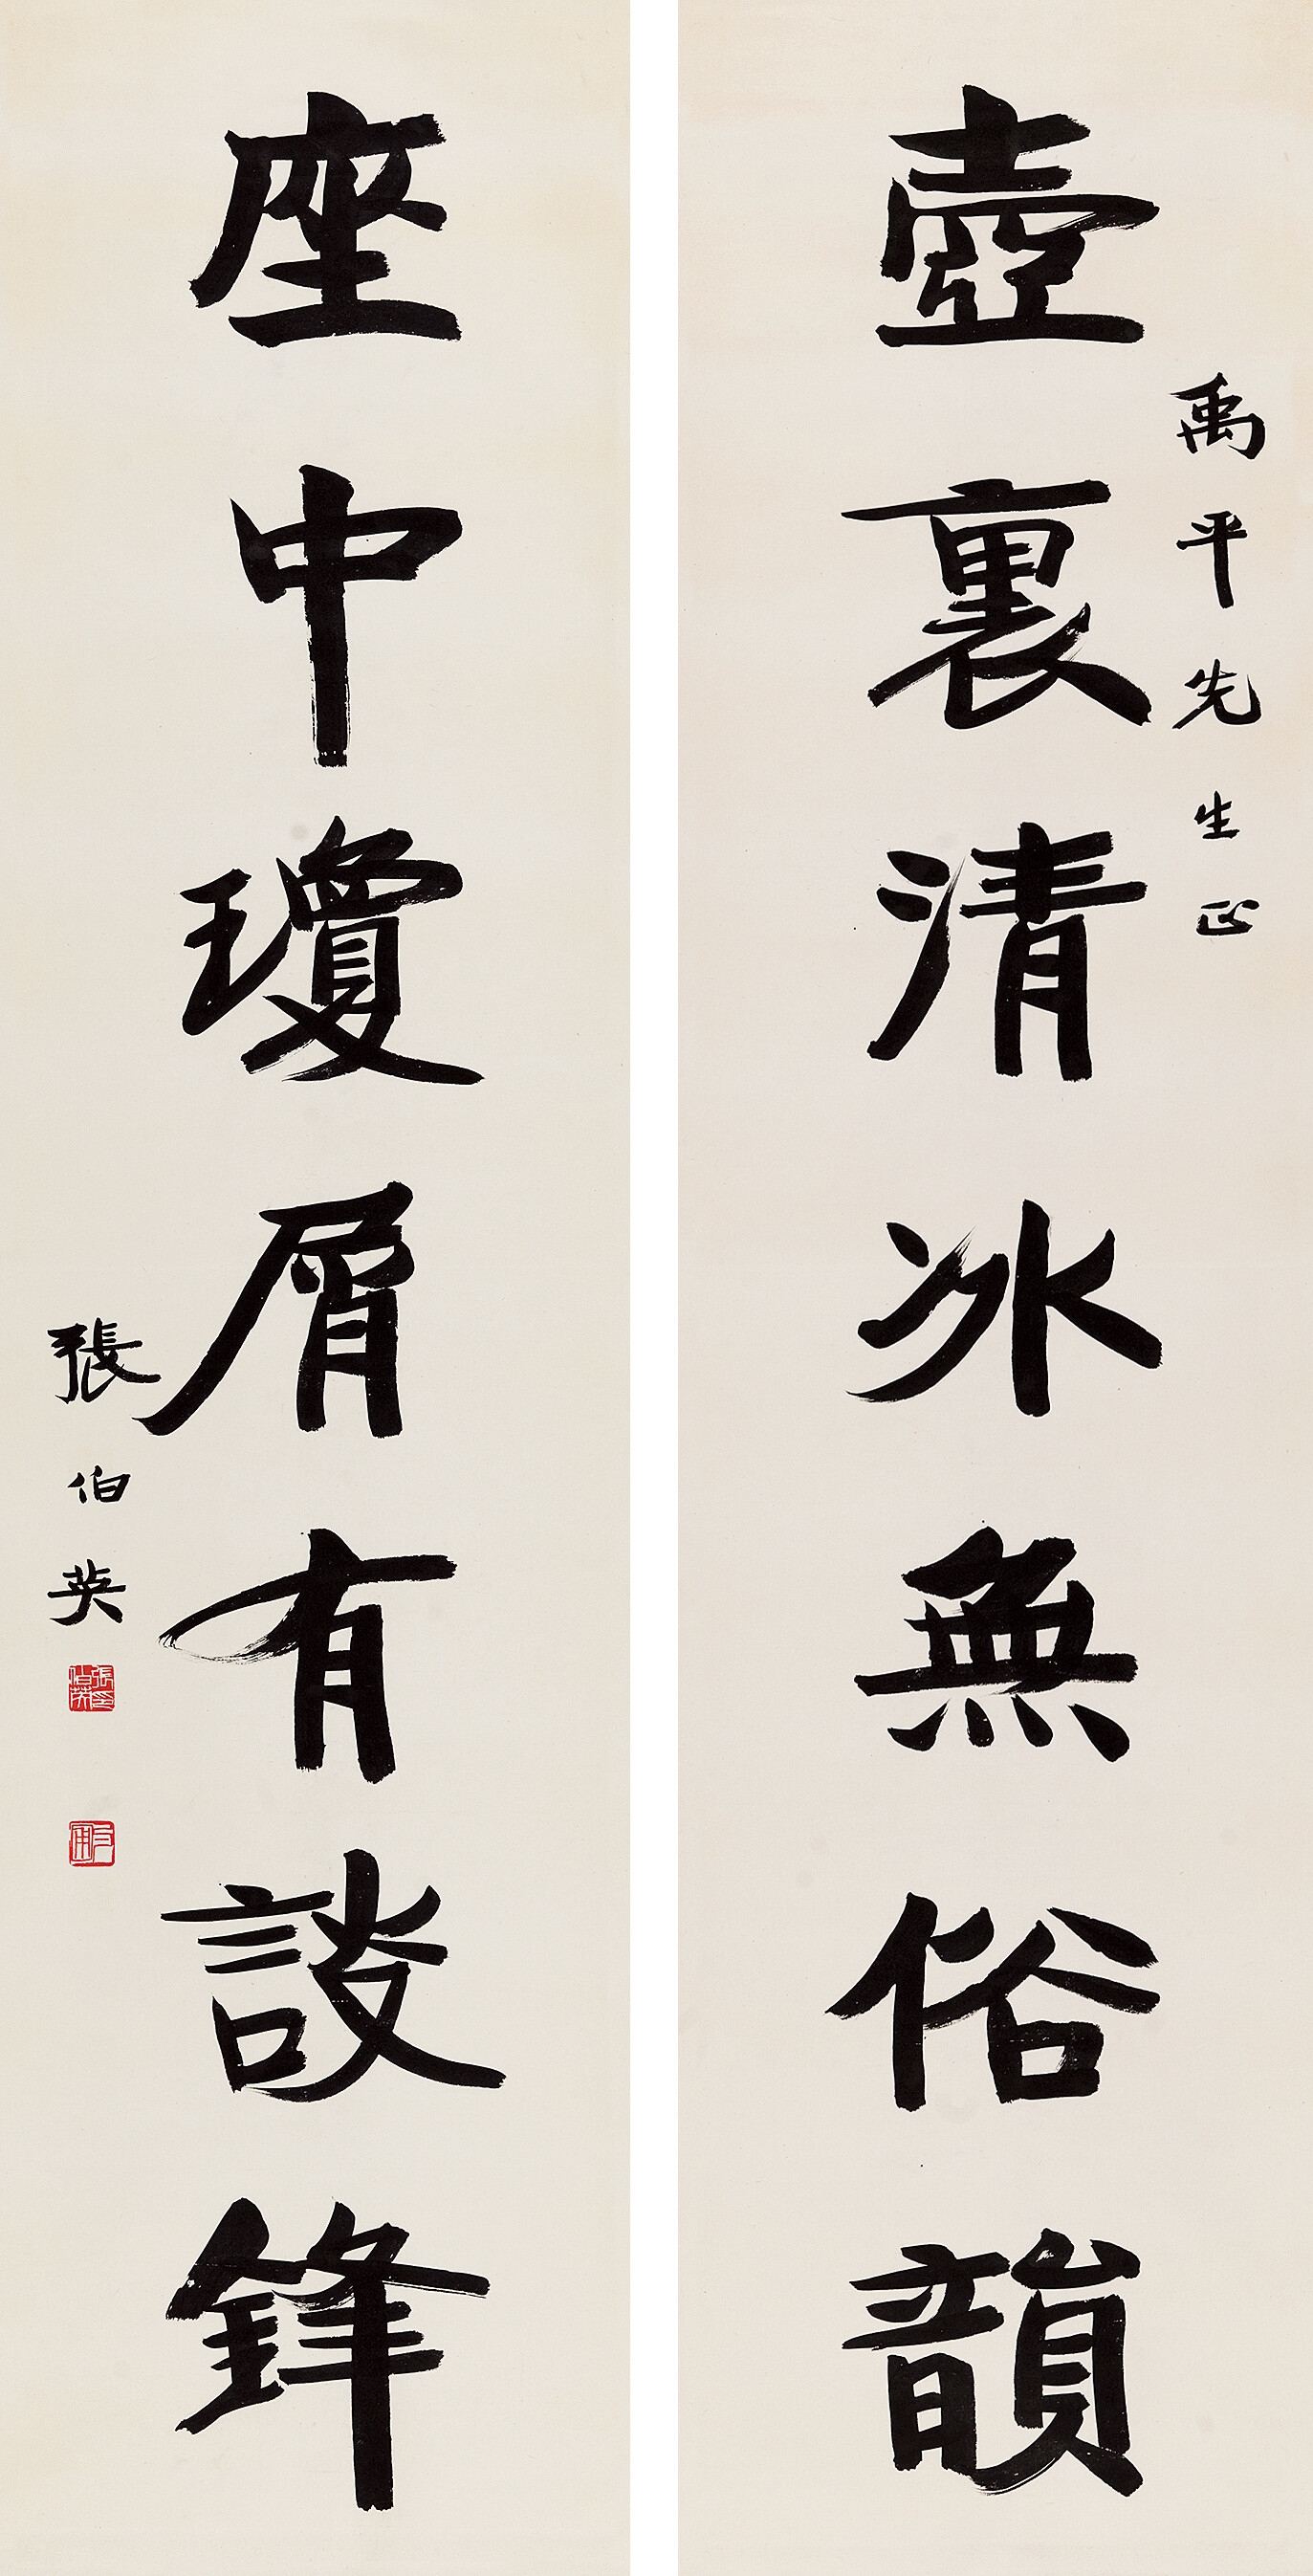 壺裏清冰無俗韻
禹平先生正
座中瓊屑有談鋒
張伯英
張伯英印